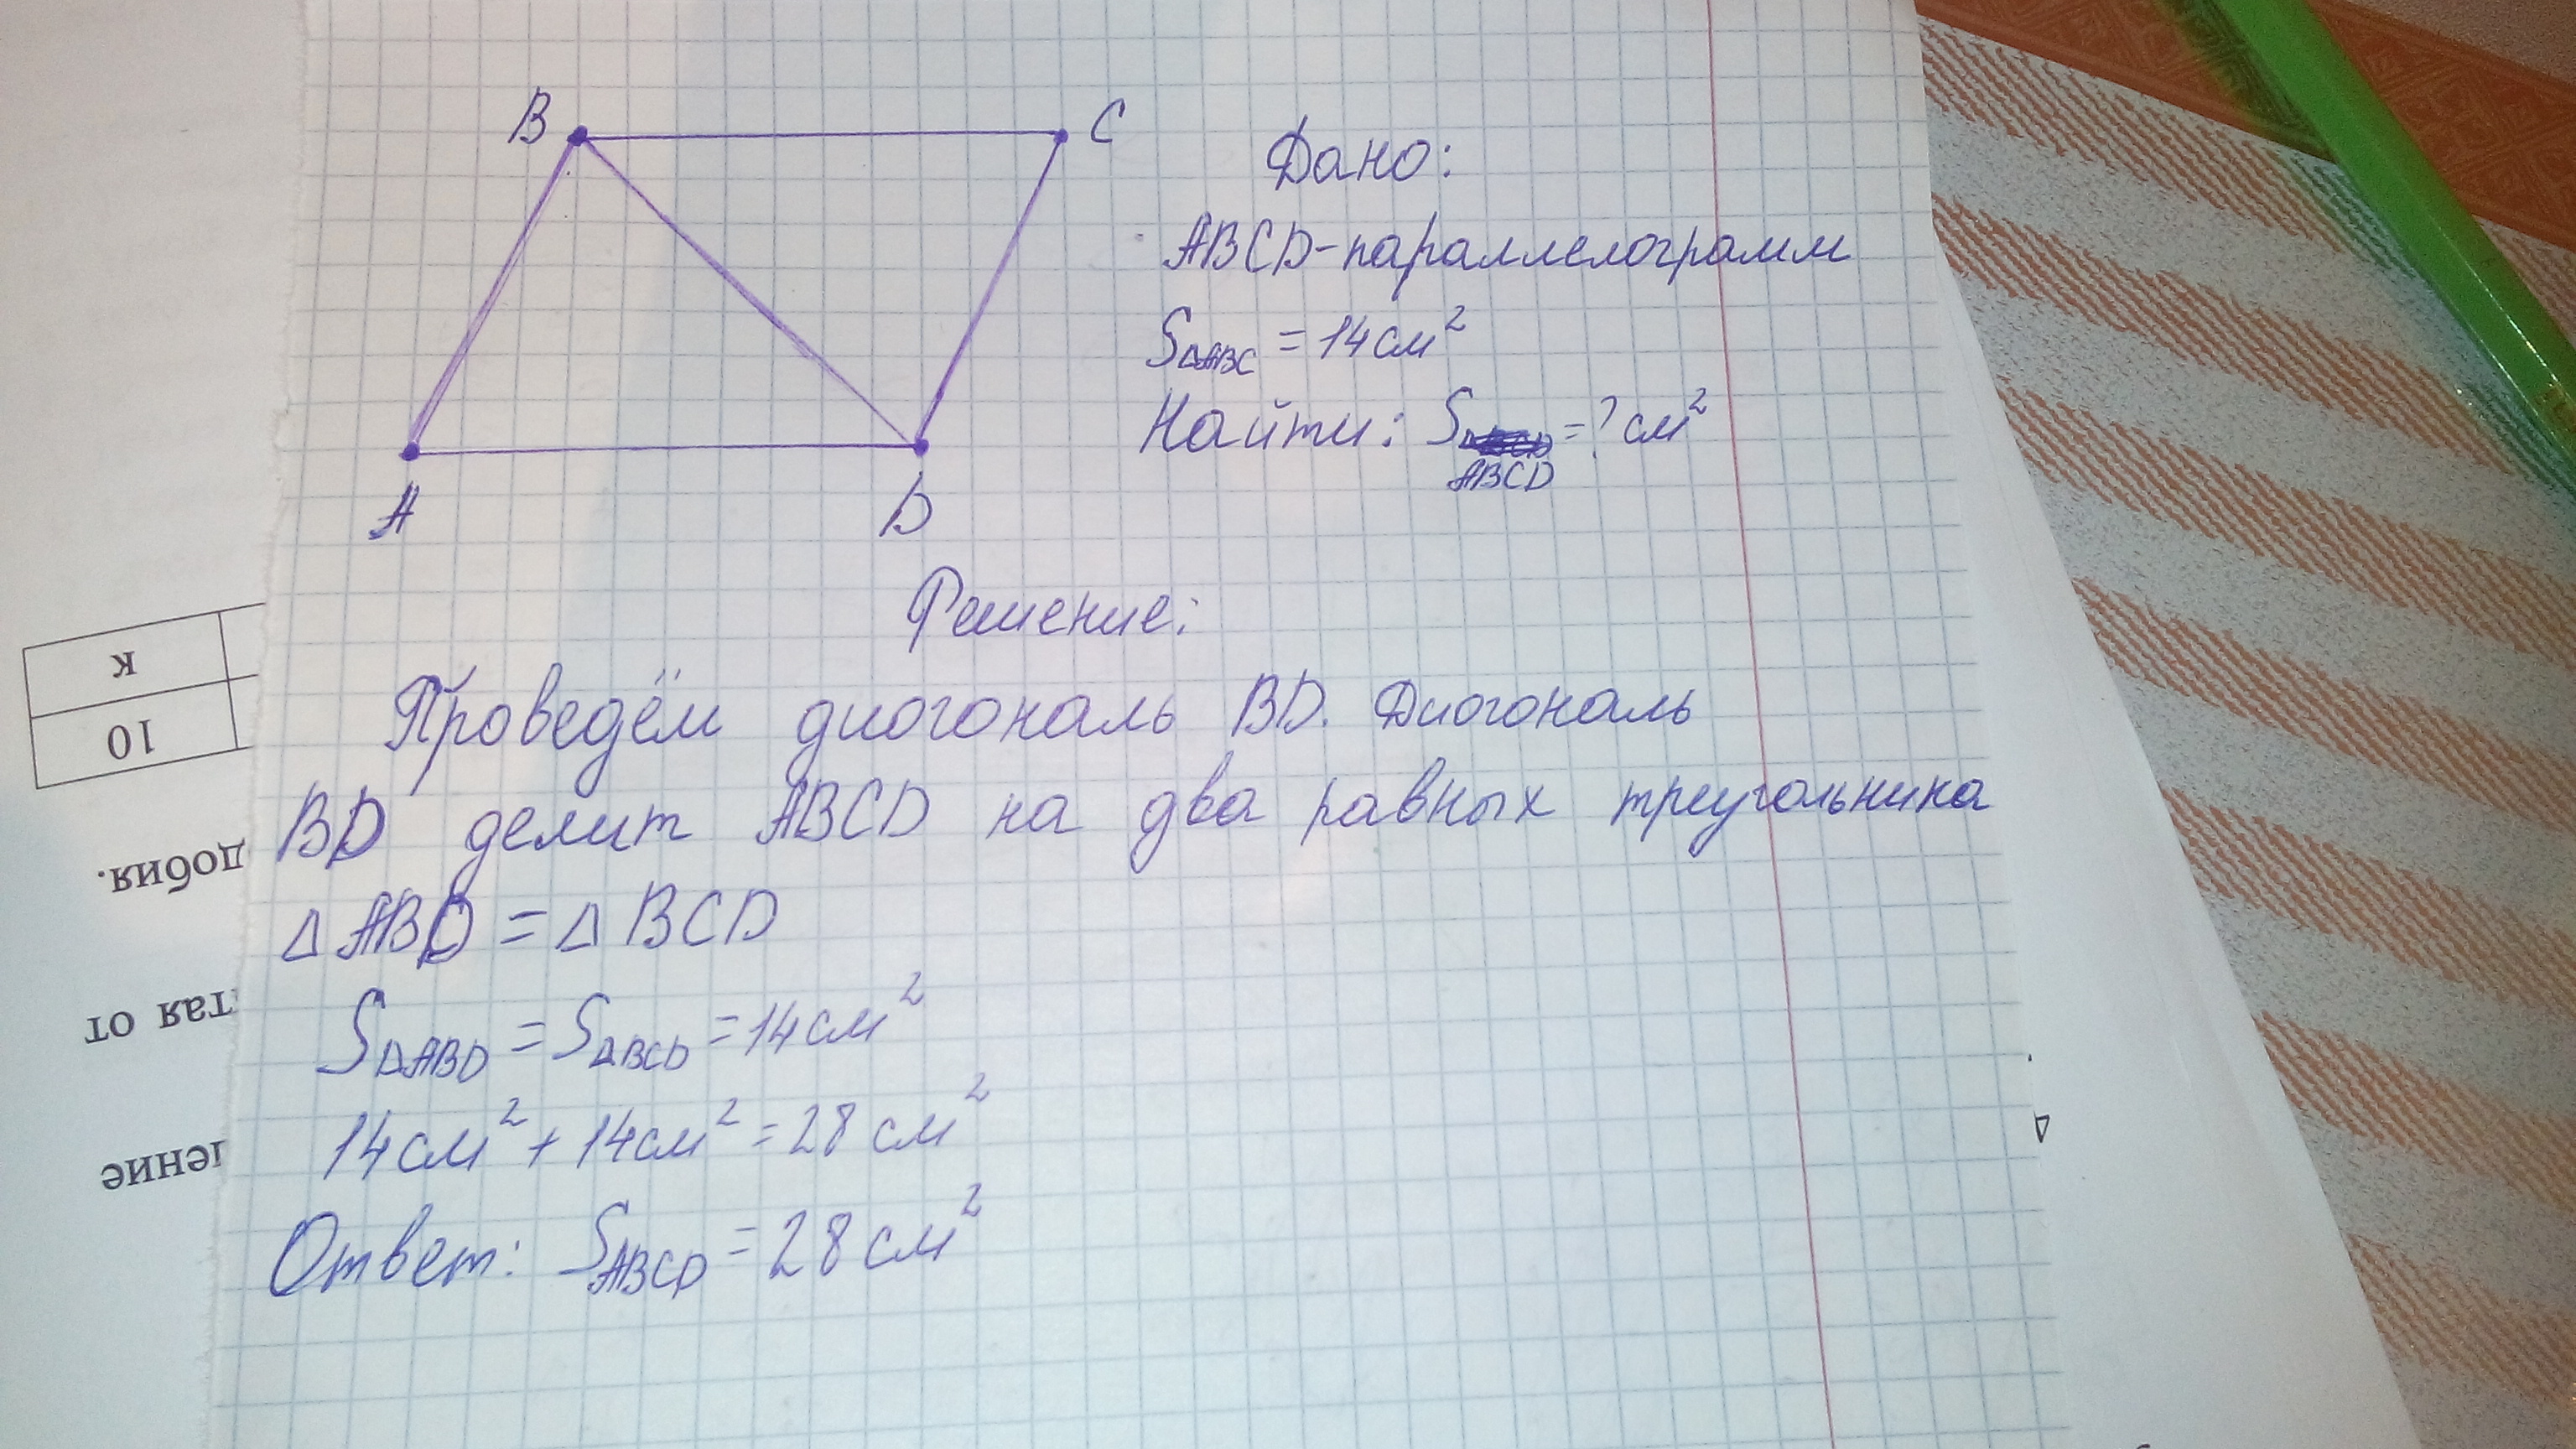 B
C
A
D
Дано:
ABCD-параллелограмм
S△ABC = 14 см²
Найти: S = ? см²
ABCD
Решение:
Проведём диогональ BD. Диогональ
BD делит ABCD на два равных треугольника
△ ABD = △ BCD
S△ABD = S△BCD = 14 см²
14 см² + 14 см² = 28 см²
Ответ: SABCD = 28 см²
К
10
добия.
тая от
ление